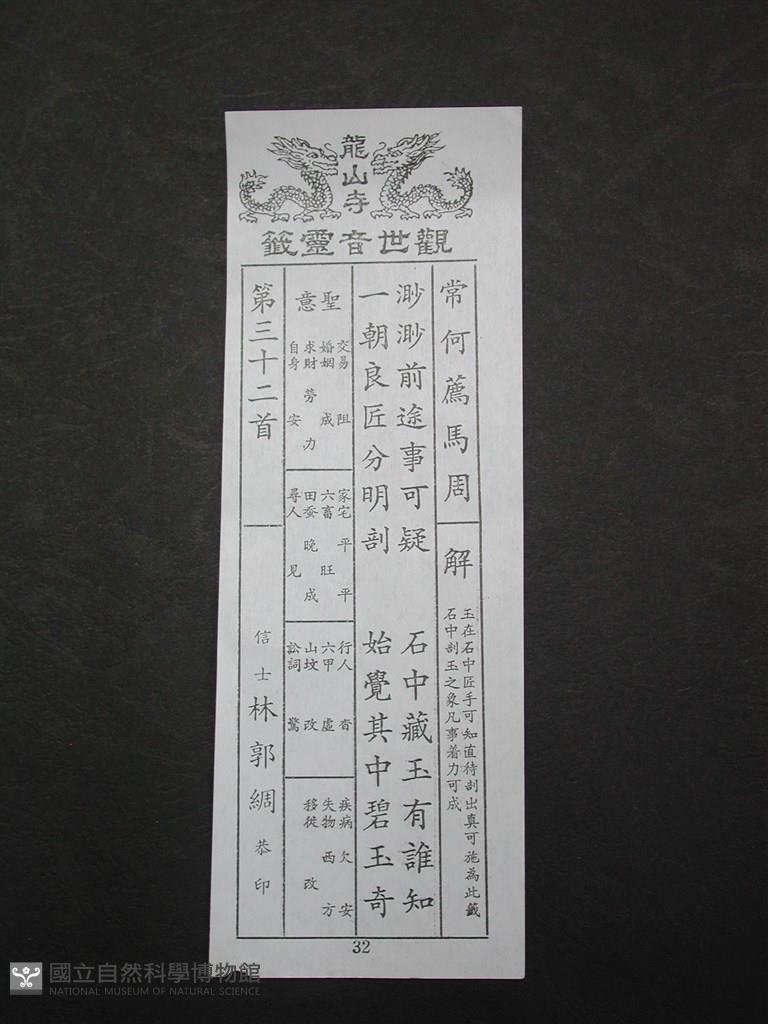 龍山寺
觀世音靈籤
常何薦馬周
解
玉在石中匠手可知直待剖出真可施為此籤
石中剖玉之象凡事着力可成
渺渺前途事可疑 石中藏玉有誰知
一朝良匠分明剖 始覺其中碧玉奇
聖意
交易 阻
婚姻 成
求財 勞力
自身 安
家宅 平平
六畜 旺
田蚕 晚成
尋人 見
行人 杳
六甲 虛
山墳 改
訟詞 驚
疾病 欠安
失物 西方
移徙 改
第三十二首
信士 林郭綢 恭印
32
國立自然科學博物館
NATIONAL MUSEUM OF NATURAL SCIENCE